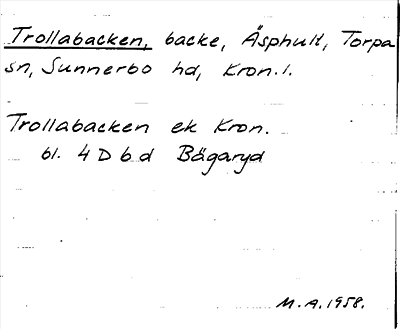 Trollabacken, backe, Äsphult, Torpa
sn, Sunnerbo hd, Kron.l.
Trollabacken ek Kron.
bl. 4 D b d Bägaryd
M.A.1958.